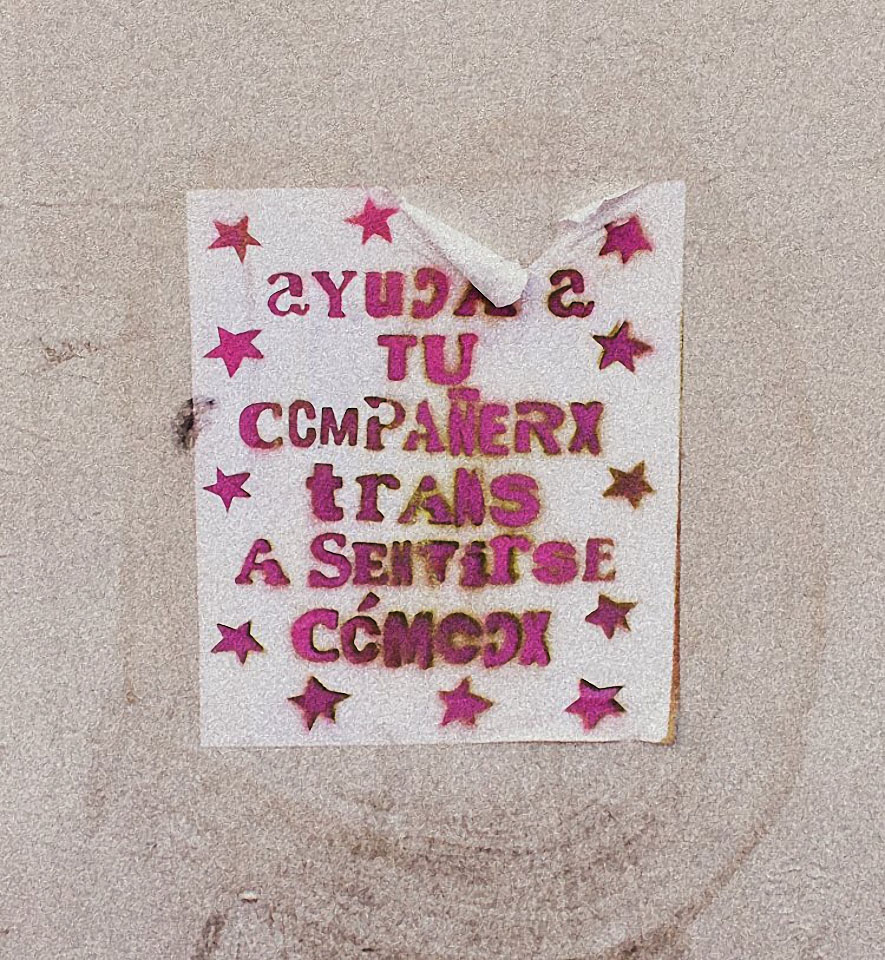 aYUDA a
TU
COMPAÑERX
trANS
A SENTirSE
CÓMODX